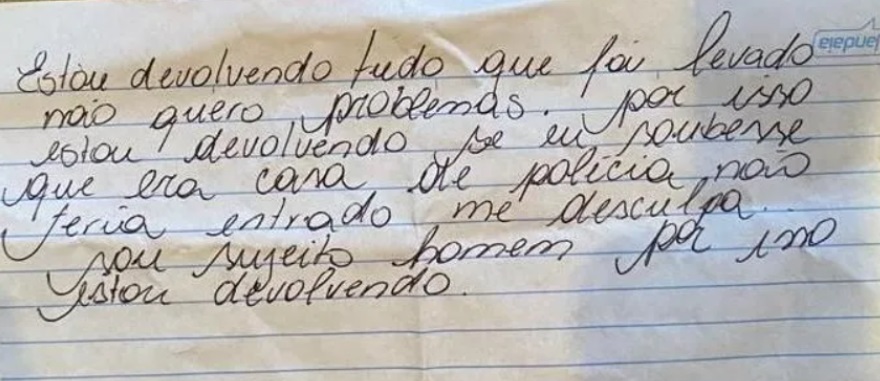 Estou devolvendo tudo que foi levado
não quero problemas. por isso
estou devolvendo se eu soubesse
que era casa de policia não
teria entrado me desculpa.
sou sujeito homem por isso
estou devolvendo.